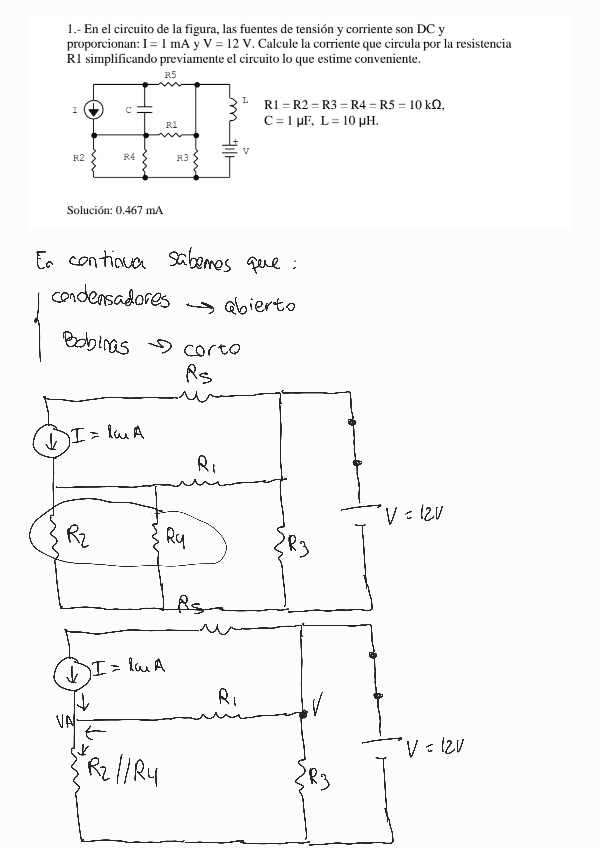 1.- En el circuito de la figura, las fuentes de tensión y corriente son DC y
proporcionan: I = 1 mA y V = 12 V. Calcule la corriente que circula por la resistencia
R1 simplificando previamente el circuito lo que estime conveniente.
R5
I
C
L
R1
R2
R4
R3
+
V
R1 = R2 = R3 = R4 = R5 = 10 kΩ,
C = 1 µF, L = 10 µH.
Solución: 0.467 mA
En continua sabemos que :
condensadores → abierto
Bobinas → corto
R5
I = 1mA
R1
R2
R4
R3
V = 12V
R5
I = 1mA
R1
V
VA
R2//R4
R3
V = 12V